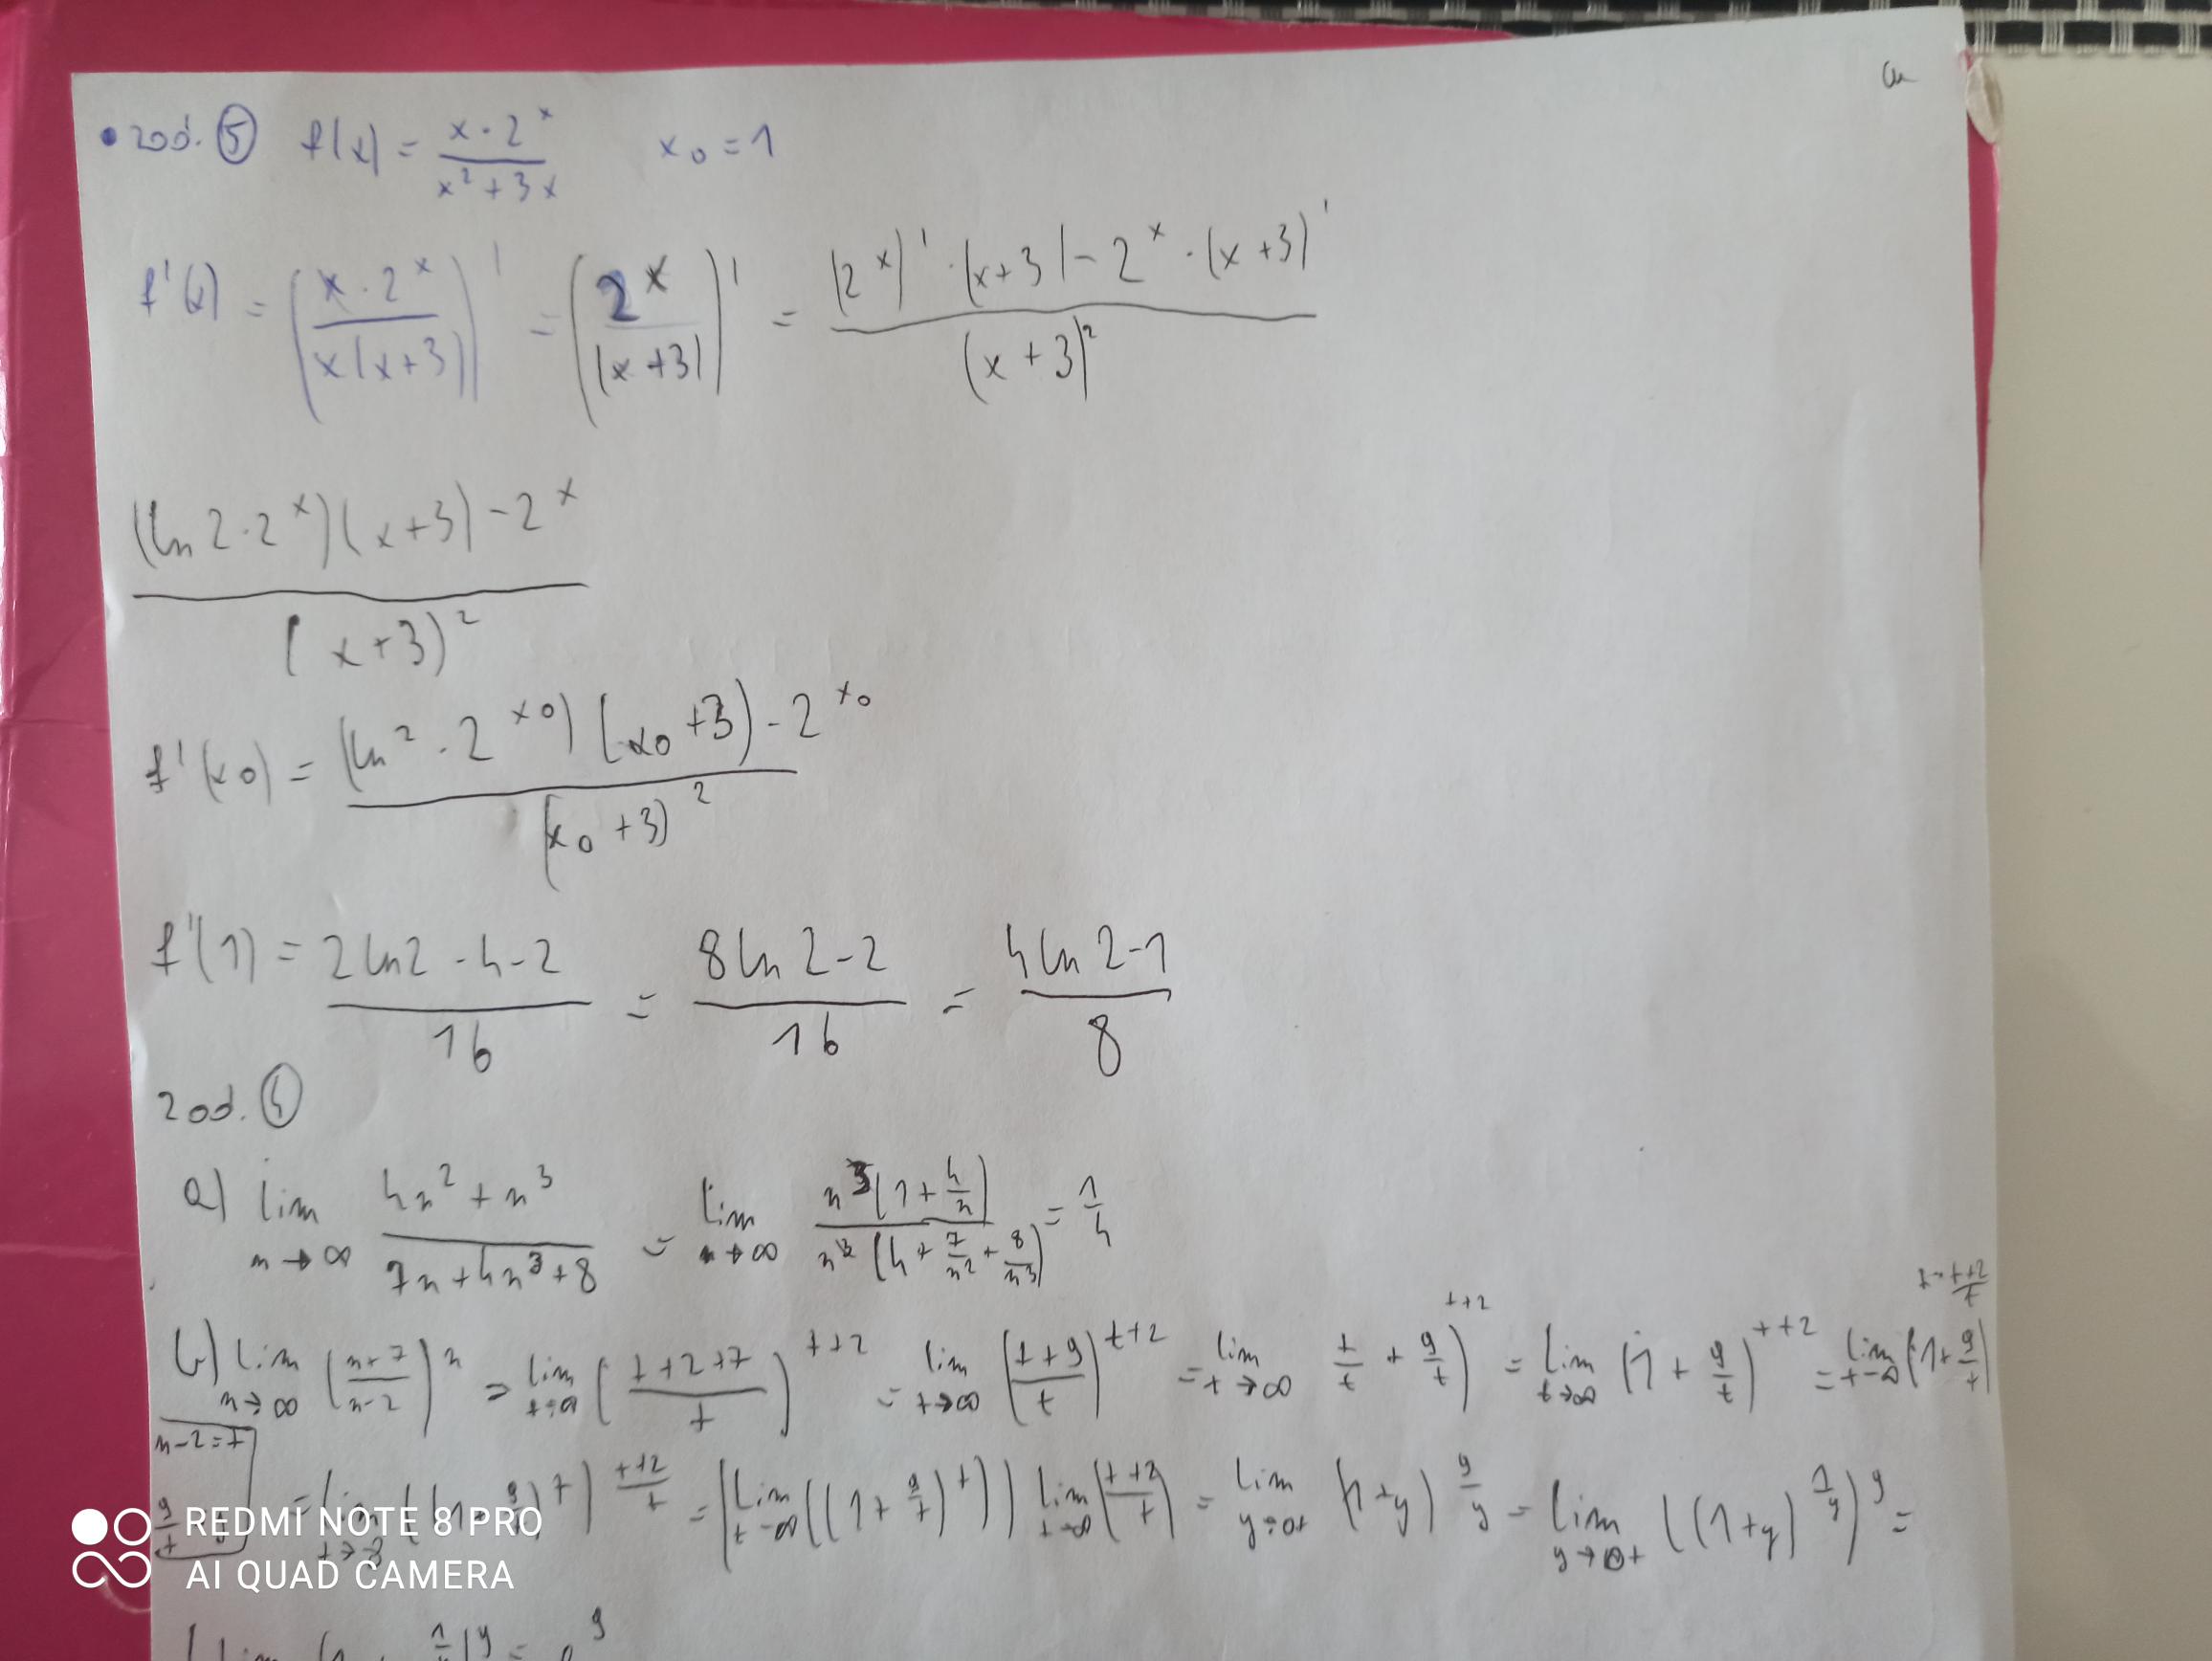 • zad. ⑤ f(x) = \frac{x · 2^x}{x^2 + 3x} x_0 = 1
f'(x) = \left(\frac{x · 2^x}{x(x+3)}\right)' = \left(\frac{2^x}{(x+3)}\right)' = \frac{(2^x)' · (x+3) - 2^x · (x+3)'}{(x+3)^2}
\frac{(ln 2 · 2^x)(x+3) - 2^x}{(x+3)^2}
f'(x_0) = \frac{(ln 2 · 2^{x_0})(x_0+3) - 2^{x_0}}{(x_0+3)^2}
f'(1) = \frac{2 ln2 · 4 - 2}{16} = \frac{8 ln 2 - 2}{16} = \frac{4 ln 2 - 1}{8}
zad. ④
a) lim_{n→∞} \frac{4n^2 + n^3}{7n + 4n^3 + 8} = lim_{n→∞} \frac{n^3(1 + \frac{4}{n})}{n^3(4 + \frac{7}{n^2} + \frac{8}{n^3})} = \frac{1}{4}
b) lim_{n→∞} \left(\frac{n+7}{n-2}\right)^n = lim_{t→∞} \left(\frac{t+2+7}{t}\right)^{t+2} = lim_{t→∞} \left(\frac{t+9}{t}\right)^{t+2} = lim_{t→∞} \frac{t}{t} + \frac{9}{t})^{t+2} = lim_{t→∞} (1 + \frac{9}{t})^{t+2} = lim_{t→∞} (1 + \frac{9}{t})^{t · \frac{t+2}{t}}
n-2=t
= lim ((1+\frac{9}{t})^t)^{\frac{t+2}{t}} = (lim_{t→∞} ((1+\frac{9}{t})^t)) lim_{t→∞} (\frac{t+2}{t}) = lim_{y→0+} (1+y)^{\frac{9}{y}} = lim_{y→0+} ((1+y)^{\frac{1}{y}})^9 =
REDMI NOTE 8 PRO
AI QUAD CAMERA